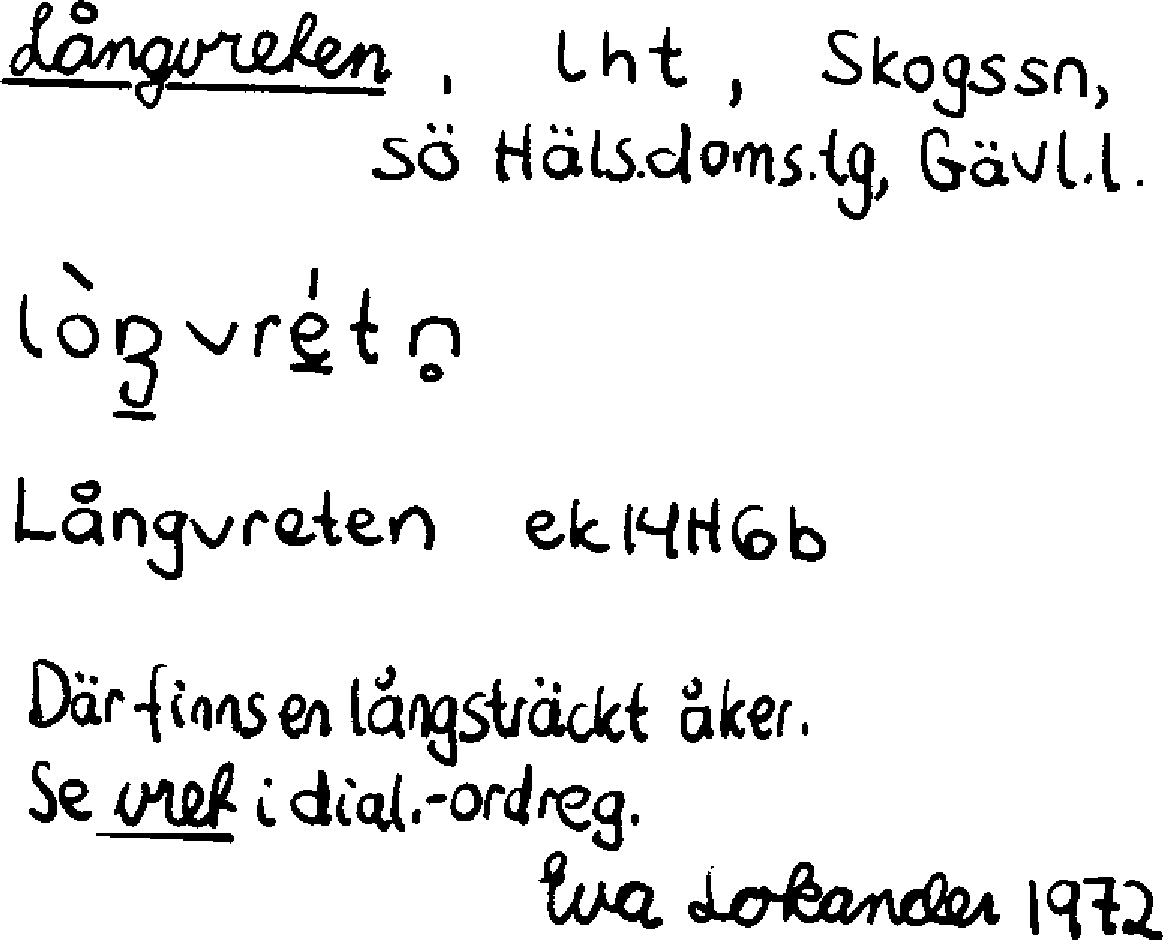 Långvreten, lht, Skogssn,
sö Häls.doms.tg, Gävl.l.
lòŋvrétn̥
Långvreten ek14H6b
Där finns en långsträckt åker.
Se vret i dial.-ordreg.
Eva Lokander 1972